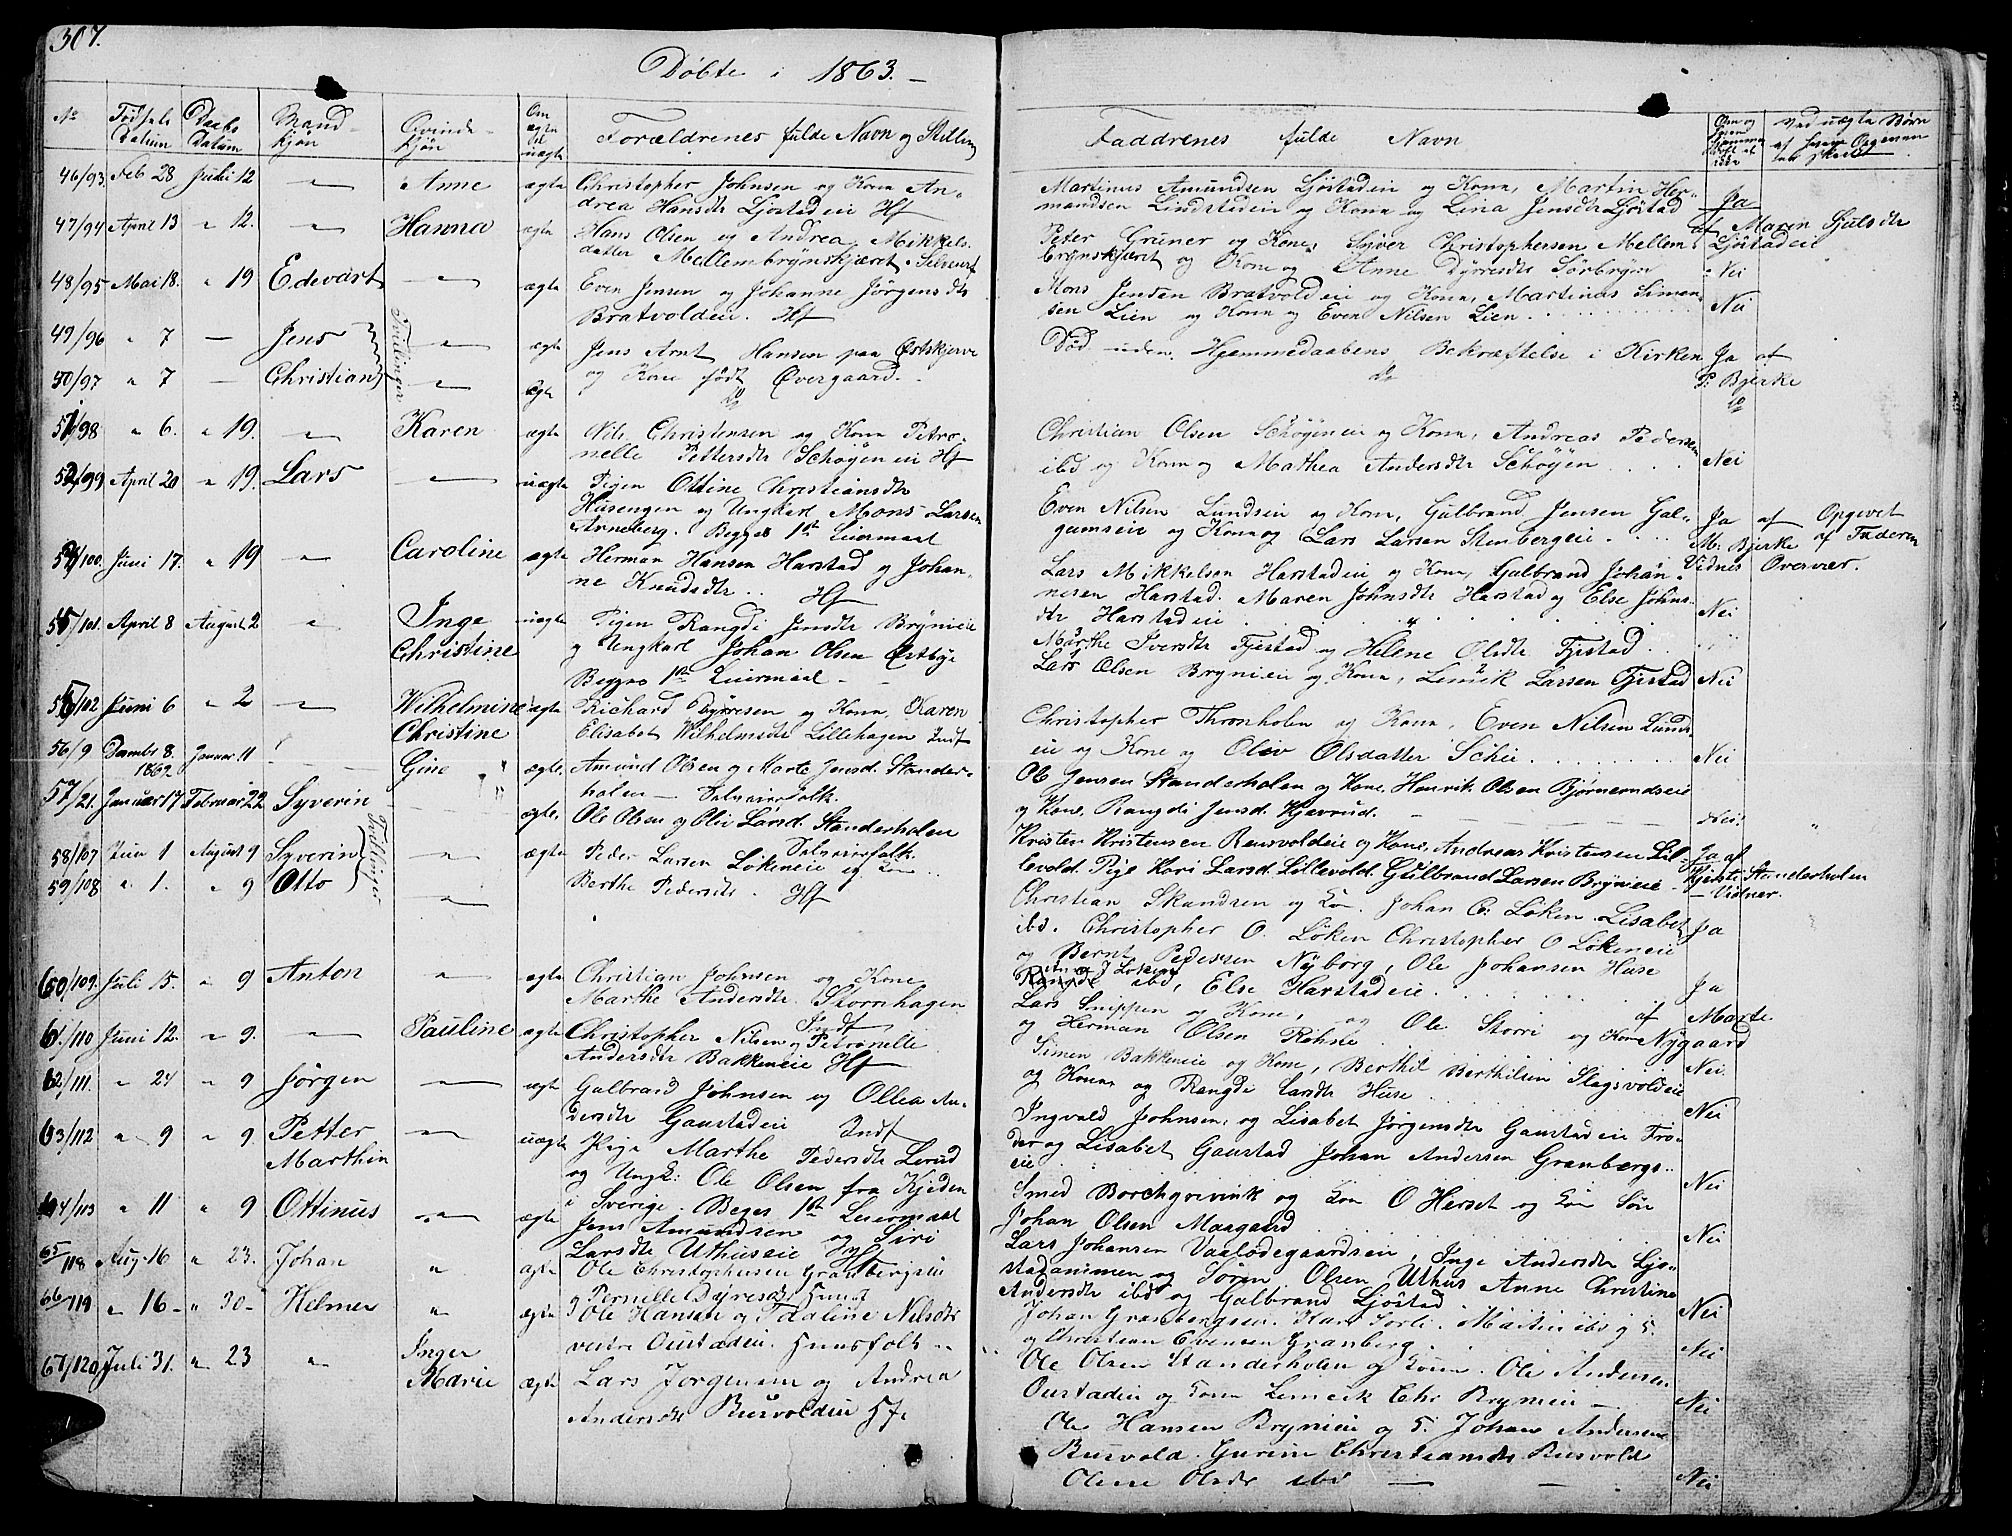 307.
Döbte i 1863. —
No
Födsels Datum
Daabs Datum
Mand-kjön
Qvinde-kjön
Om ægte el uægte
Forældrenes fulde Navn og Stilling
Faddrenes fulde Navn
Ved uægte Börn
46/93. Feb 28 Juli 12 " Anne ægte Christopher Johnsen og Kone An-
drea Hansdtr Ljöstadeie Hf
Martinus Amundsen Ljöstadeie og Kone, Martin Her-
mandsen Lindstadeie og Kone og Lina Jensdtr Ljöstad
Ja
af Maren Ljöstadeie
47/94 April 13 " 12. " Hanna ægte Hans Olsen og Andrea Mikkels-
datter Mellembrynskjæret Selveierf
Peter Gruner og Kone, Syver Christophersen Mellem-
brynskjæret og Kone og Anne Dyrresdtr Sörbryn
Nei
48/95 Mai 18. " 19 Edevart — ægte Even Jensen og Johanne Jörgensdtr
Bratvoldeie. Hf
Mons Jensen Bratvoldeie og Kone, Martinus Simen-
sen Lien og Kone og Even Nilsen Lien
Nei
49/96 " 7 — Jens " ægte Jens Arnt Hansen paa Östskjerve
og Kone födt Övergaard.
Tvillinger
Död uden Hjemmedaabens Bekræftelse i Kirken Ja af
P. Bjerke
50/97 " 7 — Christian " ægte do
do
do
51/98 " 6. " 19. " Karen ægte Nils Christensen og Kone Petro-
nelle Pettersdtr Schöyeneie Hf
Christian Olsen Schöyeneie og Kone, Andreas Pedersen
ibd og Kone og Mathea Andersdtr Schöyen
Nei
52/99 April 20 " 19. Lars — uægte Pigen Ottine Christiansdtr
Husengen og Ungkarl Mons Larsen
Anneberg. Begges 1st Leiermaal
Even Nilsen Lundseie og Kone, Gulbrand Jensen Gal-
gumseie og Kone og Lars Larsen Stenbergeie
Ja af
M. Bjerke
Vidner
Opgivet
af Faderen
Overvær.
/100. Juni 17. " 19 " Caroline ægte Herman Hansen Harstad og Johan-
ne Knudsdtr Hf
Lars Mikkelsen Harstadeie og Kone, Gulbrand Johan-
nesen Harstad. Maren Johnsdtr Harstad og Else Johns-
dtr Harstadeie
Nei
/101. April 8 August 2 " Inge
Christine uægte Pigen Rangdi Jensdtr Brynieie
og Ungkarl Johan Olsen Östbye
Begges 1st Leiermaal
Marthe Iversdtr Fjestad og Helene Olsdtr Fjestad
Lars Olsen Brynieie og Kone, Lemik Larsen Fjestad
Nei
/102 Juni 6 " 2 " Wilhelmine
Christine ægte Richard Dyrresen og Kone Karen
Elisabet Wilhelmsdtr Lillehagen Indf
Christopher Thronholen og Kone, Even Nilsen Lunds-
eie og Kone og Oliv Olsdatter Schie
Nei
56/9 Decembr 8. 1862 Januar 11 — Gine ægte. Amund Olsen og Marte Jensd. Stander-
holen — Selveierfolk.
Ole Jensen Standerholen og Kone, Henrik Olsen Björnerudseie
og Kone, Rangdi Jensd. Hjeverud.
Nei.
57/21. Januar 17 Februar 22 Syverin — ægte. Ole Olsen og Oliv Larsd. Standerholen
Selveierfolk.
Kristen Kristensen Rusvoldeie og Kone, Andreas Kristensen Lil-
levold. Pige Kari Larsd. Lillevold. Gulbrand Larsen Brynieie
Ja af
Kjersti Standerholen
— Vidner.
58/107 Juni 1 August 9 Syverin " ægte Peder Larsen Lökeneie og Kone
Berthe Pedersdtr. Hf
59/108 " 1. " 9 Otto "
Tvillinger
Christian Skandsen og Kone. Johan C: Löken. Lisabet
ibd. Christopher O. Löken Christopher O Lökeneie
og Bernt Pedersen Nyborg, Ole Johansen Huse
Ja
60/109. Juli 15. " 9 Anton " ægte Christian Johnsen og Kone
Marthe Andersdtr. Stornhagen
Indf
ibd, Else Harstadeie
Lars Snippen og Kone, og Ole Storri og Kone
og Herman Olsen Röhne
Ja
af Marte
Nygaard
61./110 Juni 12. " 9. " Pauline ægte Christopher Nilsen og Petronelle
Andersdtr Bakkeneie Hf
Simen Bakkeneie og Kone, Berthil Berthilsen Slagsvoldeie
og Kone, og Rangdi Larsdtr Huse
Nei.
62/111. " 24 " 9 Jörgen — ægte Gulbrand Johnsen og Ollea An-
dersdtr Gaustadeie Indf
Ingvald Johnsen, og Lisabet Jörgensdtr Gaustadeie Fro-
der og Lisabet Gaustad Johan Andersen Granbergs-
eie
Nei
63/112 " 9 " 9 Petter
Marthin — uægte Pige Marthe Pedersdtr Lerud
og Ungk: Ole Olsen fra Kjeden
i Sverige. Beges 1st Leiermaal
Smed Borchgrevink og Kone O Herset og Kone Sön
Johan Olsen Maagaard
Nei
64/113 " 11 " 9 Ottinus " ægte Jens Amundsen og Siri
Larsdtr Uthuseie Hf
Lars Johansen Vaalödegaardseie, Inge Andersdtr Ljö-
stadammen og Sören Olsen Uthus Anne Christine
Andersdtr ibd og Gulbrand Ljöstad
Nei
65/118 Aug. 16 " 23. Johan " ægte Ole Christophersen Granbergseie
og Pernelle Dyresdtr Huusf
Johan Granbergseie. Kari Sorli. Martin ibd og
og Christian Evensen Granberg
Nei
66/119 " 16 — " 30 — Helmer " ægte Ole Hansen og Idaline Nilsdtr
vestre Oustadeie. Huusfolk
Ole Olsen Standerholen og Kone. Ole Andersen
Oustadeie og Kone Lemeik Chr Brynieie —
Nei
Nei
67/120 Juli 31. " 23 " Inger
Marie ægte Lars Jörgensen og Andrea
Andersdtr Rusvoldeie Hf.
Ole Hansen Brynieie og Johan Andersen
Rusvold Gurine Christiansdtr Rusvold
Olene Olsdr ibd —
Nei